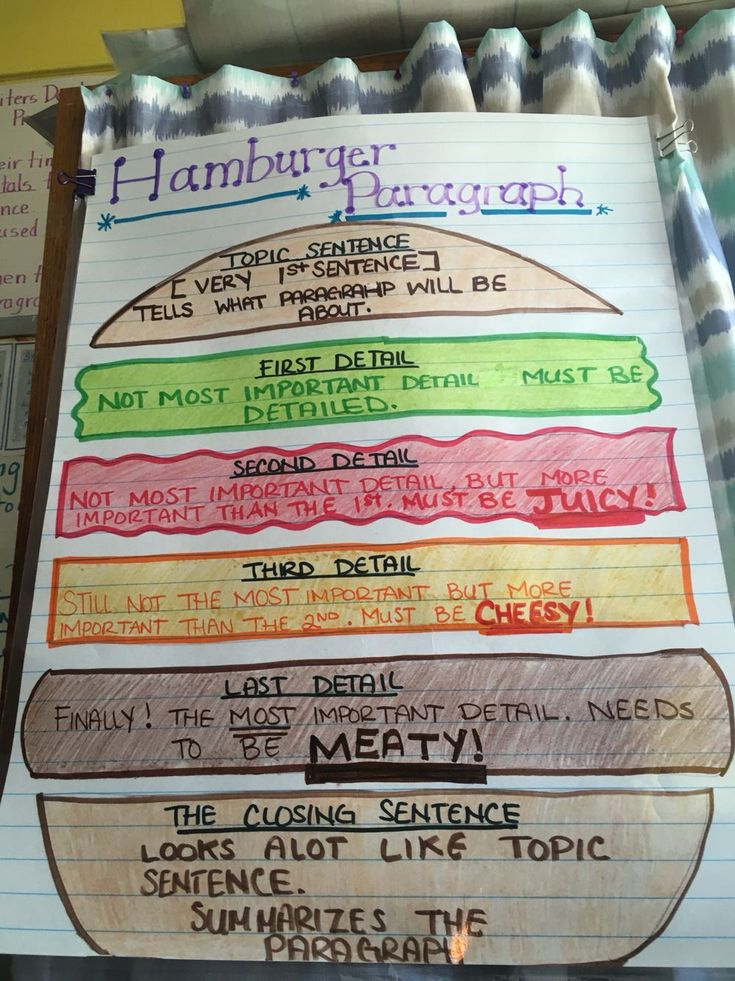 iters D
P
eir tim
tals t
nce
used
hen t
ragra
Hamburger
Paragraph
TOPIC SENTENCE
[VERY 1st SENTENCE]
TELLS WHAT PARAGRAHP WILL BE
ABOUT.
FIRST DETAIL
NOT MOST IMPORTANT DETAIL MUST BE
DETAILED.
SECOND DETAIL
NOT MOST IMPORTANT DETAIL, BUT MORE
IMPORTANT THAN THE 1st. MUST BE JUICY!
THIRD DETAIL
STILL NOT THE MOST IMPORTANT BUT MORE
IMPORTANT THAN THE 2ND. MUST BE CHEESY!
LAST DETAIL
FINALLY! THE MOST IMPORTANT DETAIL. NEEDS
TO BE MEATY!
THE CLOSING SENTENCE
LOOKS ALOT LIKE TOPIC
SENTENCE.
SUMMARIZES THE
PARAGRAPH.